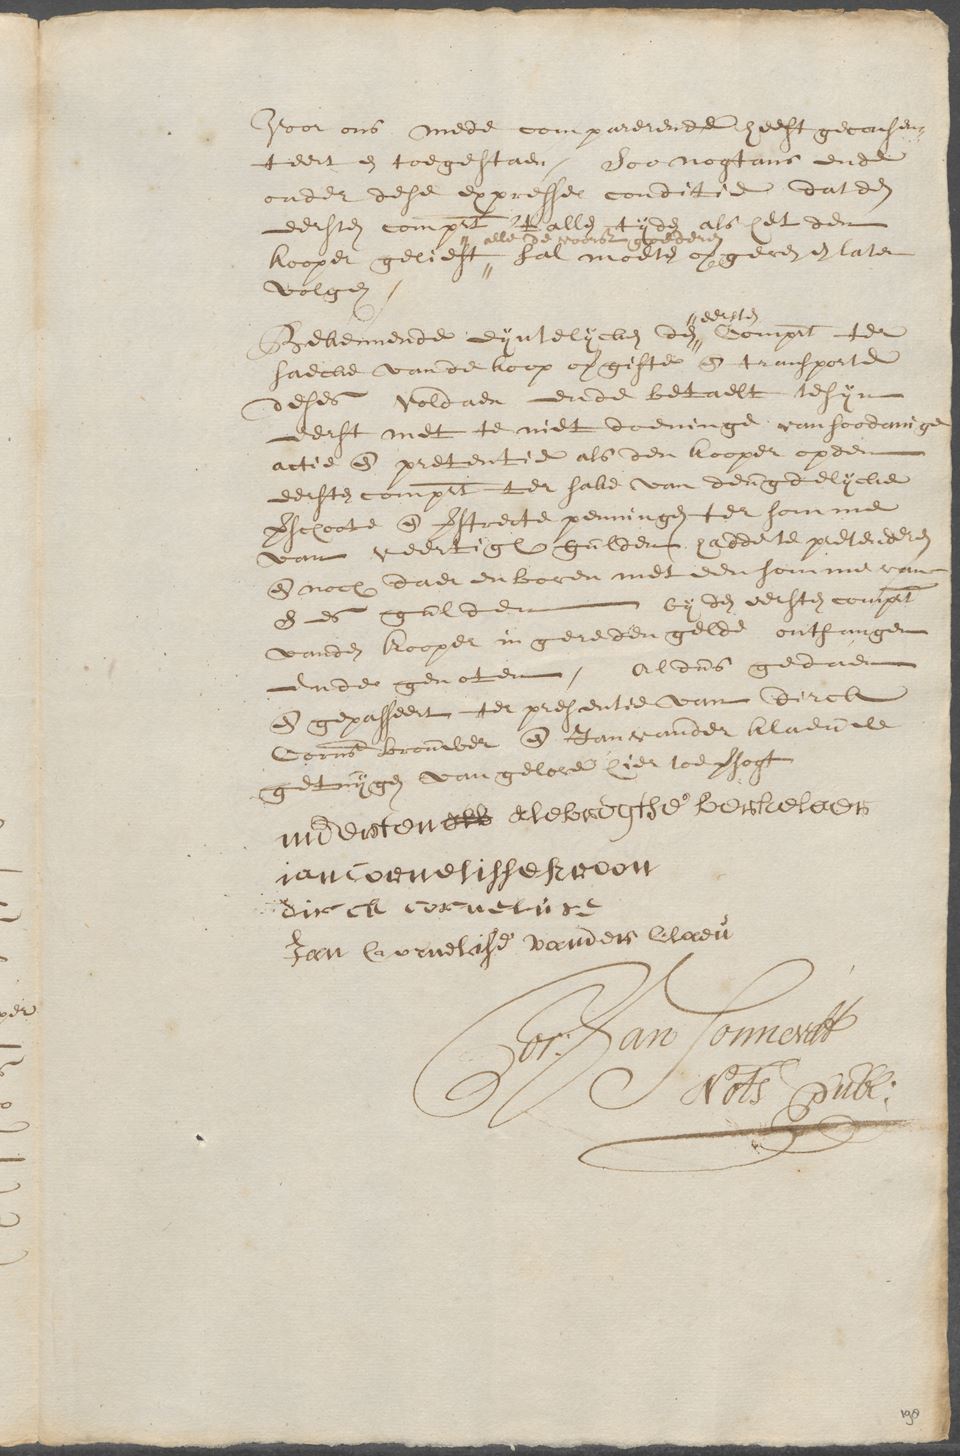 Voor ons mede comparerende heeft geconsen-
teert en toegestaen / Soo nogtans ende
onder dese expresse conditie dat den
eersten comprt 't allen tyden als het den
kooper gelieft " alle de voorsz goederen " sal moeten opgeven en laten
volgen /
Bekennende eyntelycken den " eersten " Comprt ter
saecke vande koop opgifte en transporte
deses voldaen ende betaelt te syn
eerst met te niet doeninge van soodanige
actie en pretentie als den kooper op den
eersten comprt ter sake van deugdelycke
verschoote en verstreckte penningen ter somme
van veertigh gulden hadde te pretenderen
en noch daer en boven met een somme van
ses gulden by den eersten comprt
vanden kooper in gereden gelde ontfangen
ende genoten / Aldus gedaen
en gepasseert ter presentie van Dirck
Corns Brouwer en Jan vander Klaeu
getuygen van gelove hier toe versogt
Jan Cornelisse Kroon
dirck cornelisse
Jan Cornelisse vander Claeu
Cor: Jan Sonnevelt
Nots Publ:
198